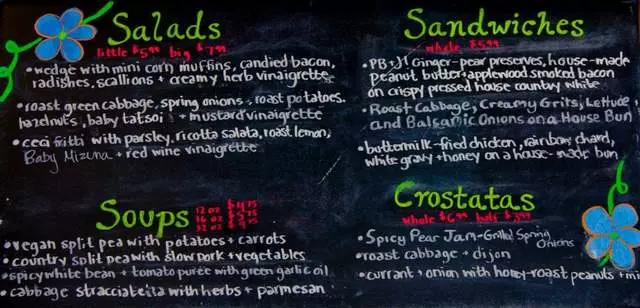 Salads
little $5.99 big $7.99
•wedge with mini corn muffins, candied bacon,
radishes, scallions + creamy herb vinaigrette
•roast green cabbage, spring onions, roast potatoes,
hazelnuts, baby tatsoi + mustard vinaigrette
•ceci fritti with parsley, ricotta salata, roast lemon,
Baby Mizuna + red wine vinaigrette
Soups
12 oz $4.75
16 oz $5.75
32 oz
•vegan split pea with potatoes + carrots
•country split pea with slow pork + vegetables
•spicy white bean + tomato puree with green garlic oil
•cabbage stracciateita with herbs + parmesan
Sandwiches
whole $5.99
•PB+J! Ginger-pear preserves, house-made
peanut butter, applewood smoked bacon
on crispy pressed house country white
•Roast Cabbage, Creamy Grits, Lettuce,
and Balsamic Onions on a House Bun
•buttermilk-fried chicken, rainbow chard,
white gravy + honey on a house-made bun
Crostatas
whole $6.99 half $3.99
•Spicy Pear Jam-Grilled Spring
Onions
•roast cabbage + dijon
•currant + onion with honey-roast peanuts + mi